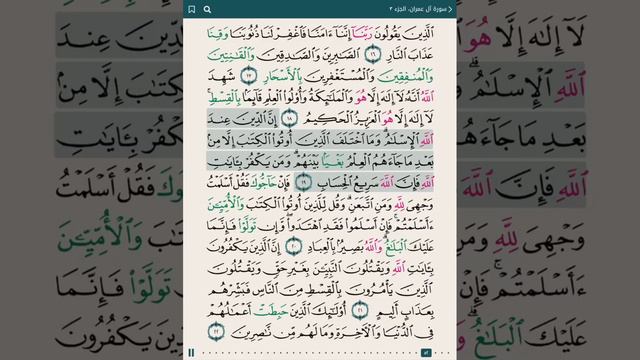 سورة آل عمران، الجزء ٣
ٱلَّذِينَ يَقُولُونَ رَبَّنَآ إِنَّنَآ ءَامَنَّا فَٱغْفِرْ لَنَا ذُنُوبَنَا وَقِنَا
عَذَابَ ٱلنَّارِ ١٦ ٱلصَّـٰبِرِينَ وَٱلصَّـٰدِقِينَ وَٱلْقَـٰنِتِينَ
وَٱلْمُنفِقِينَ وَٱلْمُسْتَغْفِرِينَ بِٱلْأَسْحَارِ ١٧ شَهِدَ
ٱللَّهُ أَنَّهُۥ لَآ إِلَـٰهَ إِلَّا هُوَ وَٱلْمَلَـٰٓئِكَةُ وَأُو۟لُوا۟ ٱلْعِلْمِ قَآئِمًۢا بِٱلْقِسْطِ ۚ
لَآ إِلَـٰهَ إِلَّا هُوَ ٱلْعَزِيزُ ٱلْحَكِيمُ ١٨ إِنَّ ٱلدِّينَ عِندَ
ٱللَّهِ ٱلْإِسْلَـٰمُ ۗ وَمَا ٱخْتَلَفَ ٱلَّذِينَ أُوتُوا۟ ٱلْكِتَـٰبَ إِلَّا مِنۢ
بَعْدِ مَا جَآءَهُمُ ٱلْعِلْمُ بَغْيًۢا بَيْنَهُمْ ۗ وَمَن يَكْفُرْ بِـَٔايَـٰتِ
ٱللَّهِ فَإِنَّ ٱللَّهَ سَرِيعُ ٱلْحِسَابِ ١٩ فَإِنْ حَآجُّوكَ فَقُلْ أَسْلَمْتُ
وَجْهِىَ لِلَّهِ وَمَنِ ٱتَّبَعَنِ ۗ وَقُل لِّلَّذِينَ أُوتُوا۟ ٱلْكِتَـٰبَ وَٱلْأُمِّيِّـۧنَ
ءَأَسْلَمْتُمْ ۚ فَإِنْ أَسْلَمُوا۟ فَقَدِ ٱهْتَدَوا۟ ۖ وَّإِن تَوَلَّوْا۟ فَإِنَّمَا
عَلَيْكَ ٱلْبَلَـٰغُ ۗ وَٱللَّهُ بَصِيرٌۢ بِٱلْعِبَادِ ٢٠ إِنَّ ٱلَّذِينَ يَكْفُرُونَ
بِـَٔايَـٰتِ ٱللَّهِ وَيَقْتُلُونَ ٱلنَّبِيِّـۧنَ بِغَيْرِ حَقٍّ وَيَقْتُلُونَ
ٱلَّذِينَ يَأْمُرُونَ بِٱلْقِسْطِ مِنَ ٱلنَّاسِ فَبَشِّرْهُم
بِعَذَابٍ أَلِيمٍ ٢١ أُو۟لَـٰٓئِكَ ٱلَّذِينَ حَبِطَتْ أَعْمَـٰلُهُمْ
فِى ٱلدُّنْيَا وَٱلْـَٔاخِرَةِ وَمَا لَهُم مِّن نَّـٰصِرِينَ ٢٢
٥٢